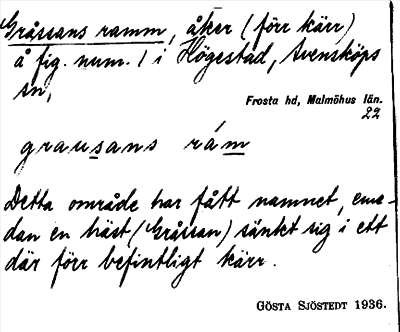 Gråssans ramm, åker (förr kärr)
å fig. num. 1 i Högestad, Svensköps
sn,
Frosta hd, Malmöhus län.
22
grausans rám
Detta område har fått namnet, eme-
dan en häst (Gråssan) sänket sig i ett
där förr befintligt kärr.
GÖSTA SJÖSTEDT 1936.